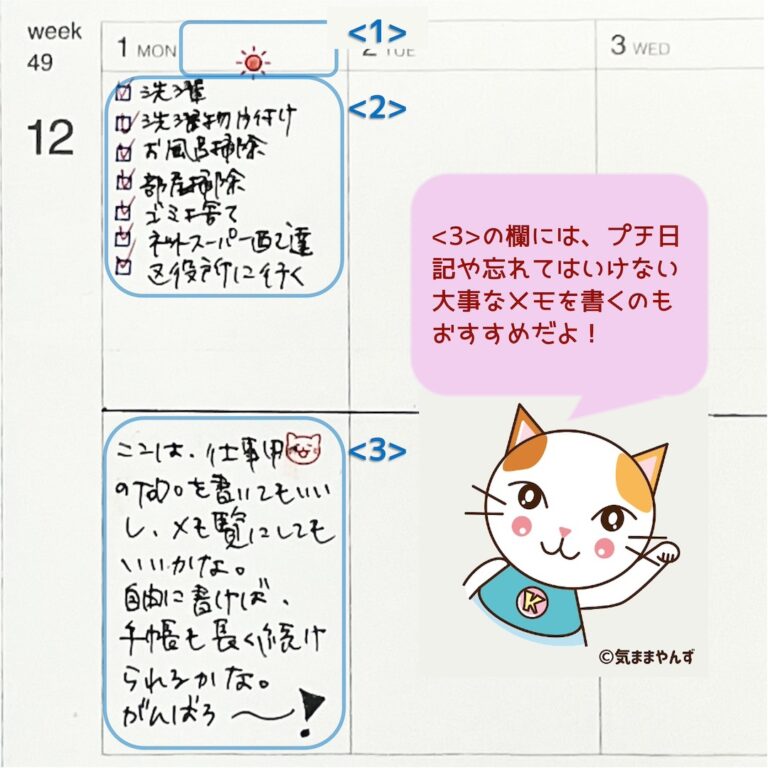 week
49
12
1 MON
<1>
2 TUE
3 WED
<2>
洗濯
洗濯物片付け
お風呂掃除
部屋掃除
ゴミ捨て
ネットスーパー配達
区役所に行く
<3>の欄には、プチ日
記や忘れてはいけない
大事なメモを書くのも
おすすめだよ！
<3>
ここは、仕事用
のToDoを書いてもいい
し、メモ覧にしても
いいかな。
自由に書けば、
手帳も長く続け
られるかな。
がんばろ〜！
K
©気ままやんず